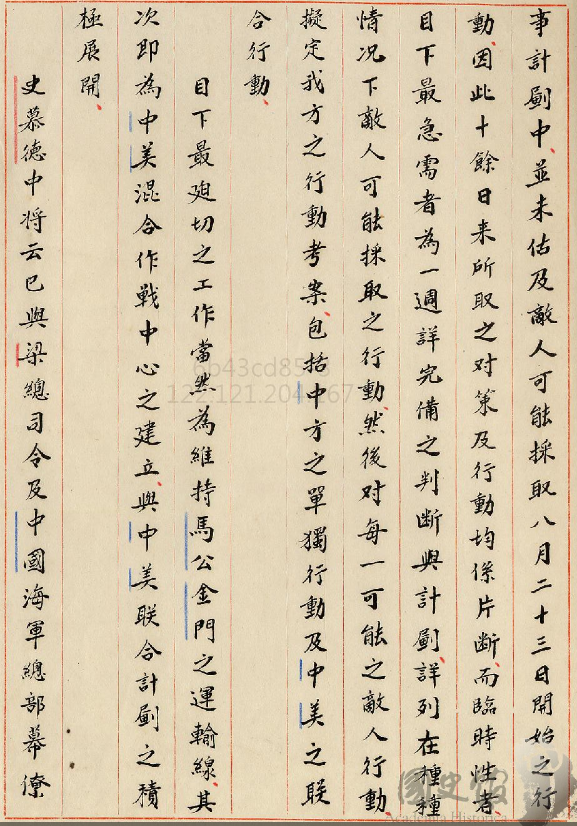 事計劃中並未估及敵人可能採取八月二十三日開始之行
動、因此十餘日來所取之对策及行動均係片断、而臨時性者、
目下最急需者為一週詳完備之判断與計劃、詳列在種種
情況下敵人可能採取之行動、然後对每一可能之敵人行動、
擬定我方之行動考案、包括中方之單獨行動及中美之联
合行動、
目下最廹切之工作當然為維持馬公金門之運輸線、其
次即為中美混合作戰中心之建立、與中美联合計劃之積
極展開、
史慕德中将云已與梁總司令及中國海軍總部幕僚
6b43cd85
122.121.204.267
國史館
Academia Historica